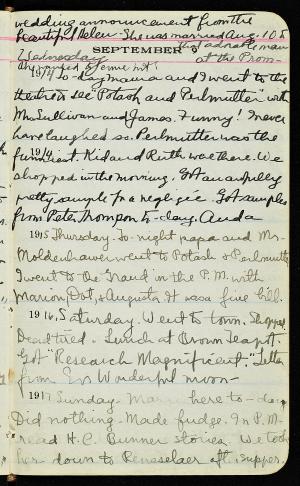 wedding announcement from the
beautiful Helen - She was married Aug. 10 &
SEPTEMBER
Wednesday at the Prom-
1914 To-day mama and I went to the
theatre to see "Potash and Perlmutter" with
Mrs Sullivan and James. Funny! I never
have laughed so. Perlmutter was the
funniest. Kid and Ruth was there. We
shopped in the morning. Got an awfully
pretty sample for a negligée. Got samples
from Peter Thompson to-day. And a
1915 Thursday. To-night papa and Mr.
Moldenhawer went to Potash & Perlmutter
I went to the Grand in the P.M. with
Marion, Dot, & Augusta. It was a fine bill.
1916. Saturday. Went to town. Shopped.
Dead tired. Lunch at Brown Teapot.
Got "Research Magnificent." Letter
from Ev. Wonderful moon -
1917 Sunday - here to-day
Did nothing. Made fudge. In P.M.
read H.C. Bunner stories. We took
her down to Rensselaer after supper.